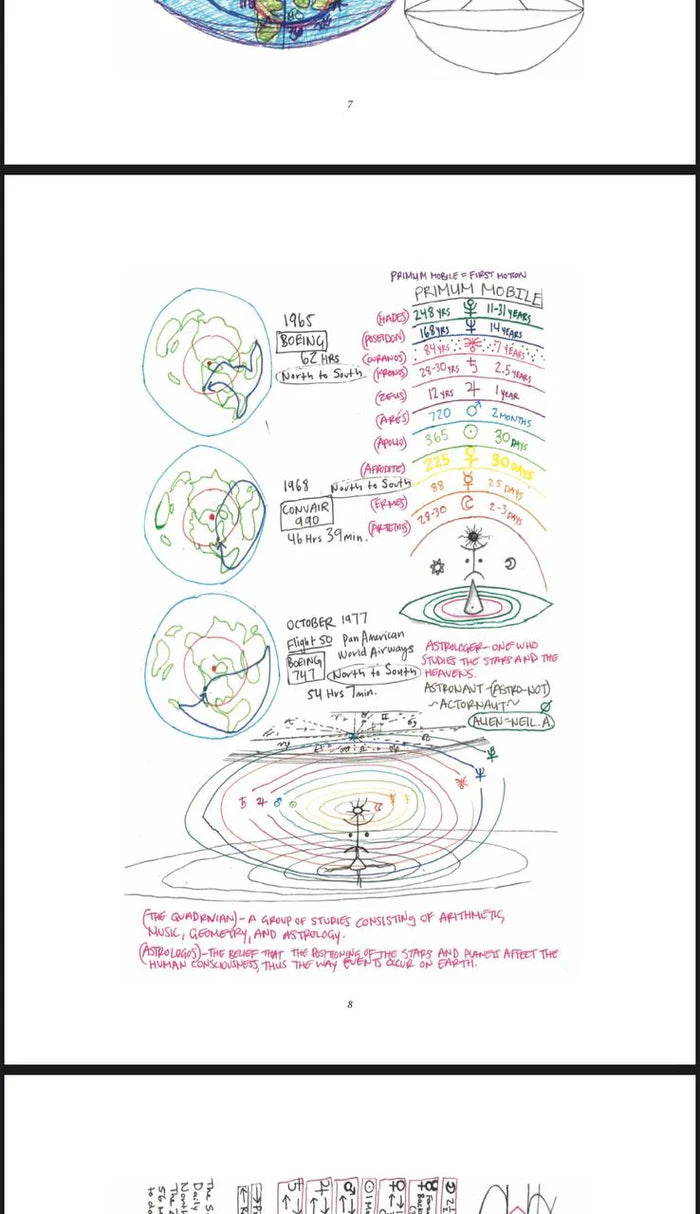 7
PRIMUM MOBILE = FIRST MOTION
PRIMUM MOBILE
(HADES) 248 YRS ♇ 11-31 YEARS
(POSEIDON) 168 YRS ♆ 14 YEARS
(OURANOS) 84 YRS ♅ 7 YEARS
(KRONOS) 28-30 YRS ♄ 2.5 YEARS
(ZEUS) 12 YRS ♃ 1 YEAR
(ARES) 720 ♂ 2 MONTHS
(APOLLO) 365 ☉ 30 DAYS
(AFRODITE) 225 ♀ 30 DAYS
(ERMES) 88 ☿ 25 DAYS
(ARTEMIS) 28-30 ☾ 2-3 DAYS
1965
BOEING
62 HRS
North to South
1968 North to South
CONVAIR
990
46 Hrs 39 min.
OCTOBER 1977
Flight 50 Pan American
World Airways
BOEING
747
North to South
54 Hrs 7 min.
ASTROLOGER - ONE WHO
STUDIES THE STARS AND THE
HEAVENS.
ASTRONAUT - (ASTRO-NOT)
~ ACTORNAUT ~
ALIEN = NEIL. A
♇
♆
♅
♄ ♃ ♂ ☉
(THE QUADRIVIAN) - A GROUP OF STUDIES CONSISTING OF ARITHMETIC,
MUSIC, GEOMETRY, AND ASTROLOGY.
(ASTROLOGOS) - THE BELIEF THAT THE POSITIONING OF THE STARS AND PLANETS AFFECT THE
HUMAN CONSCIOUSNESS, THUS THE WAY EVENTS OCCUR ON EARTH.
8